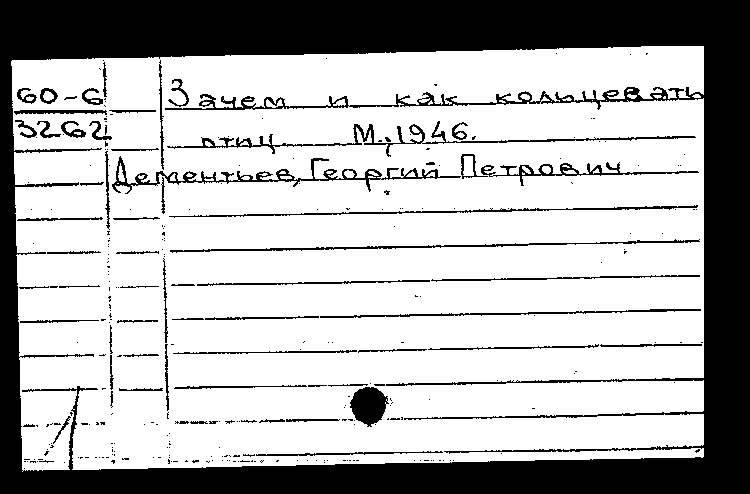 60-6 Зачем и как кольцевать
3262 птиц М.,1946.
Дементьев, Георгий Петрович
1